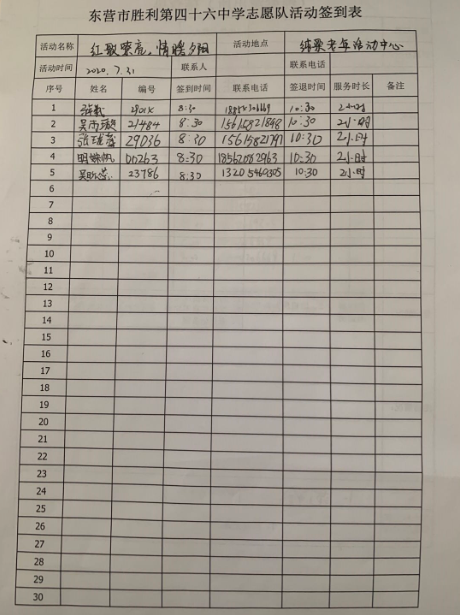 东营市胜利第四十六中学志愿队活动签到表
活动名称 红歌嘹亮,情暖夕阳 活动地点 老年活动中心
活动时间 2020.7.31 联系人 联系电话
序号 姓名 编号 签到时间 联系电话 签退时间 服务时长 备注
1 8:30 10:30 2小时
2 21484 8:30 15615821848 10:30 2小时
3 29036 8:30 10:30 2小时
4 00263 8:30 18562082963 10:30 2小时
5 23786 8:30 13205469305 10:30 2小时
6
7
8
9
10
11
12
13
14
15
16
17
18
19
20
21
22
23
24
25
26
27
28
29
30